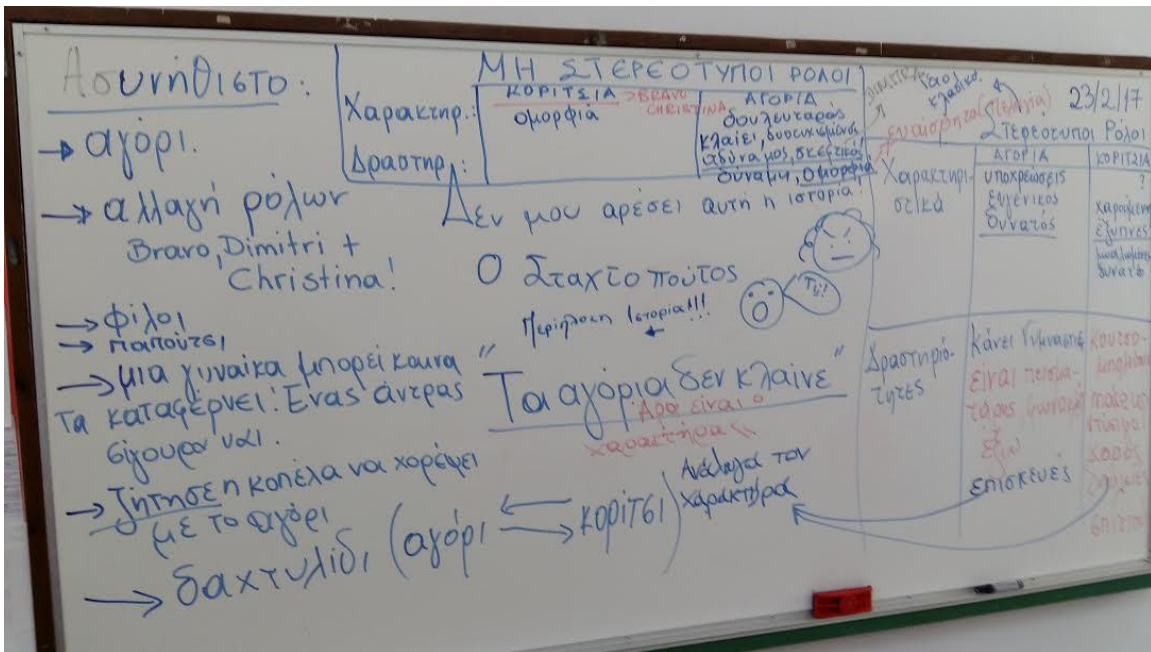 Ασυνήθιστο:
→ αγόρι.
→ αλλαγή ρόλων
Bravo, Dimitri +
Christina!
→ φίλοι
→ παπούτσι
→ μια γυναίκα μπορεί και να
τα καταφέρνει! Ένας άντρας
σίγουρα ναι.
→ ζήτησε η κοπέλα να χορέψει
με το αγόρι
→ δαχτυλίδι (αγόρι ⇄ κορίτσι)
ΜΗ ΣΤΕΡΕΟΤΥΠΟΙ ΡΟΛΟΙ
ΚΟΡΙΤΣΙΑ
>BRAVO
CHRISTINA
ΑΓΟΡΙΑ
Χαρακτηρ.:
ομορφιά
δουλευταράς
κλαίει, δυστυχισμένος
αδύναμος, σκεφτικός
δύναμη, ομορφιά
Δραστηρ.:
Δεν μου αρέσει αυτή η ιστορία!
Ο Σταχτοπούτος
Τι;!
Περίπλοκη Ιστορία!!!
"Τα αγόρια δεν κλαίνε"
Άρα είναι
χαρακτήρα
Ανάλογα τον
χαρακτήρα
23/2/17
Στερεότυποι Ρόλοι
ΑΓΟΡΙΑ
ΚΟΡΙΤΣΙΑ
Χαρακτηρι-
στικά
υποχρεώσεις
ευγενικός
δυνατός
?
χαρούμενη
έξυπνες
δυνατό
Δραστηριό-
τητες
Κάνει Γυμναστική
είναι πεισμα-
τάρης
έξω
επισκευές
χορός
σπίτια